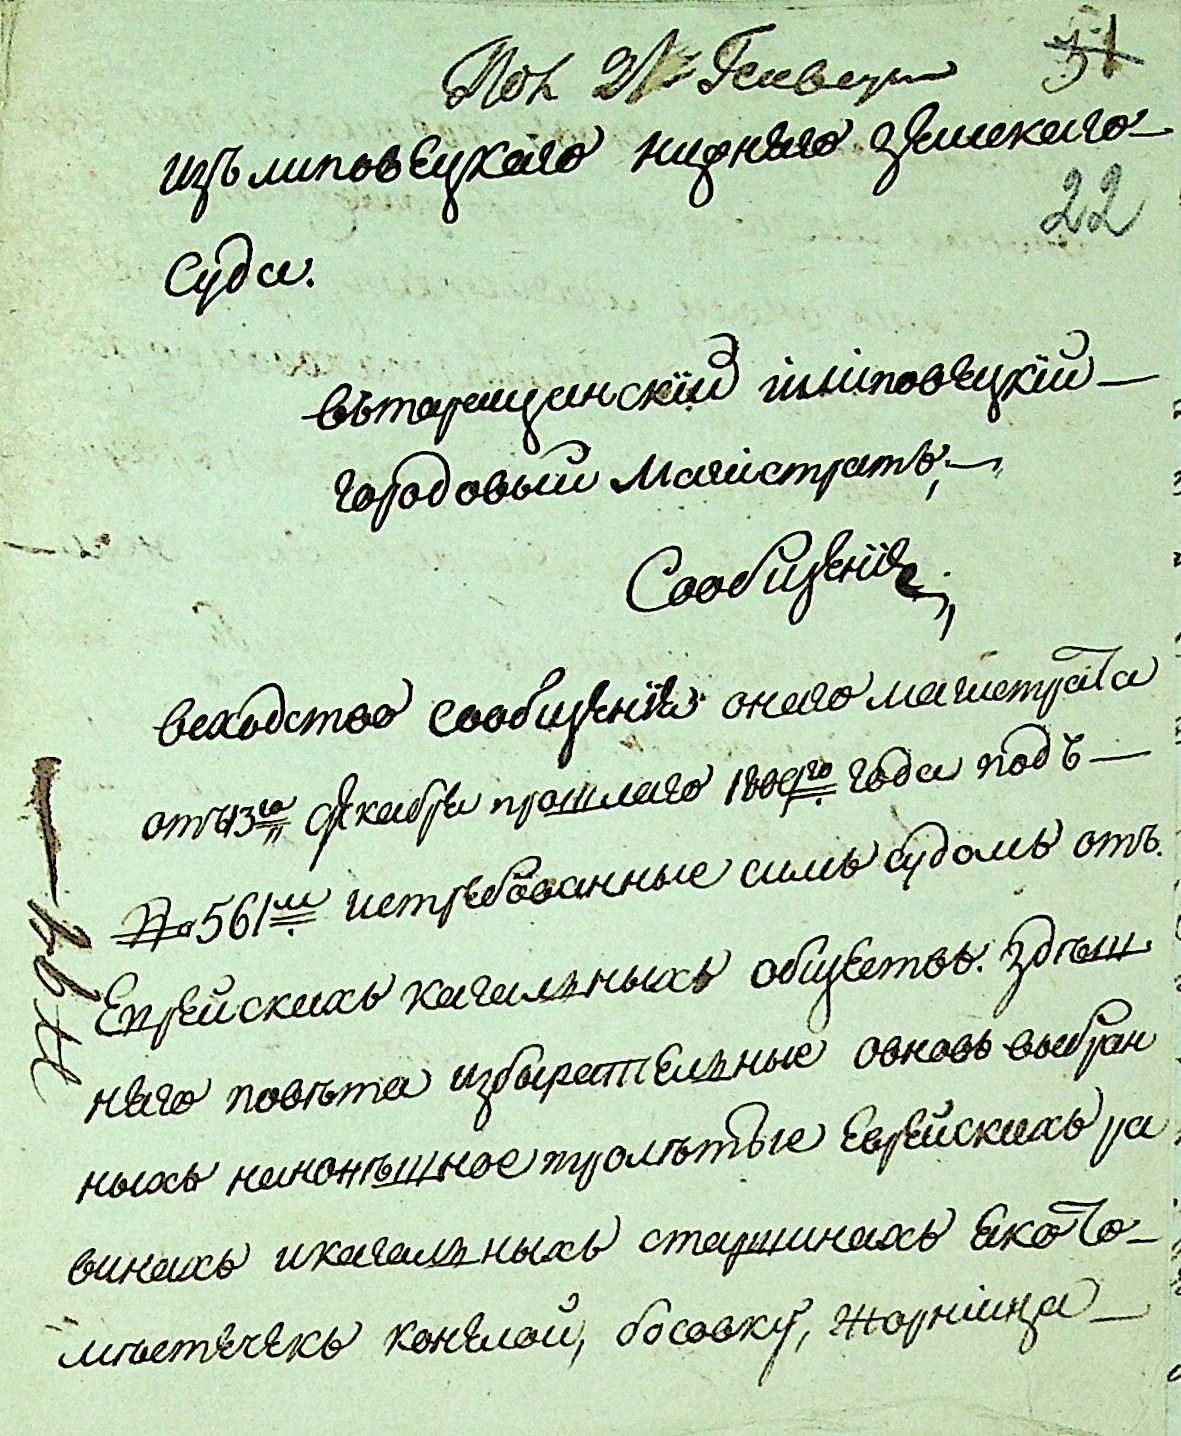 Пол 21 Генваря
51
изъ липовецкаго нижняго земскаго
22
суда.
вътаращинскїй илїповецкїй
городовый магистратъ,
Сообщенїе,
всходство сообщенїя онаго магистрата
отъ 13го декабря прошлаго 1809го года подъ
№ 561м истребованные симъ судомъ отъ
Еврейскихъ кагальныхъ обществъ здеш
няго повѣта избирательные овновь выбран
ныхъ нанонѣшное тролѣтые Еврейскихъ ра
винахъ икагальныхъ старшинахъ яко то
мѣстечекъ конелой, босовку, жорнїща